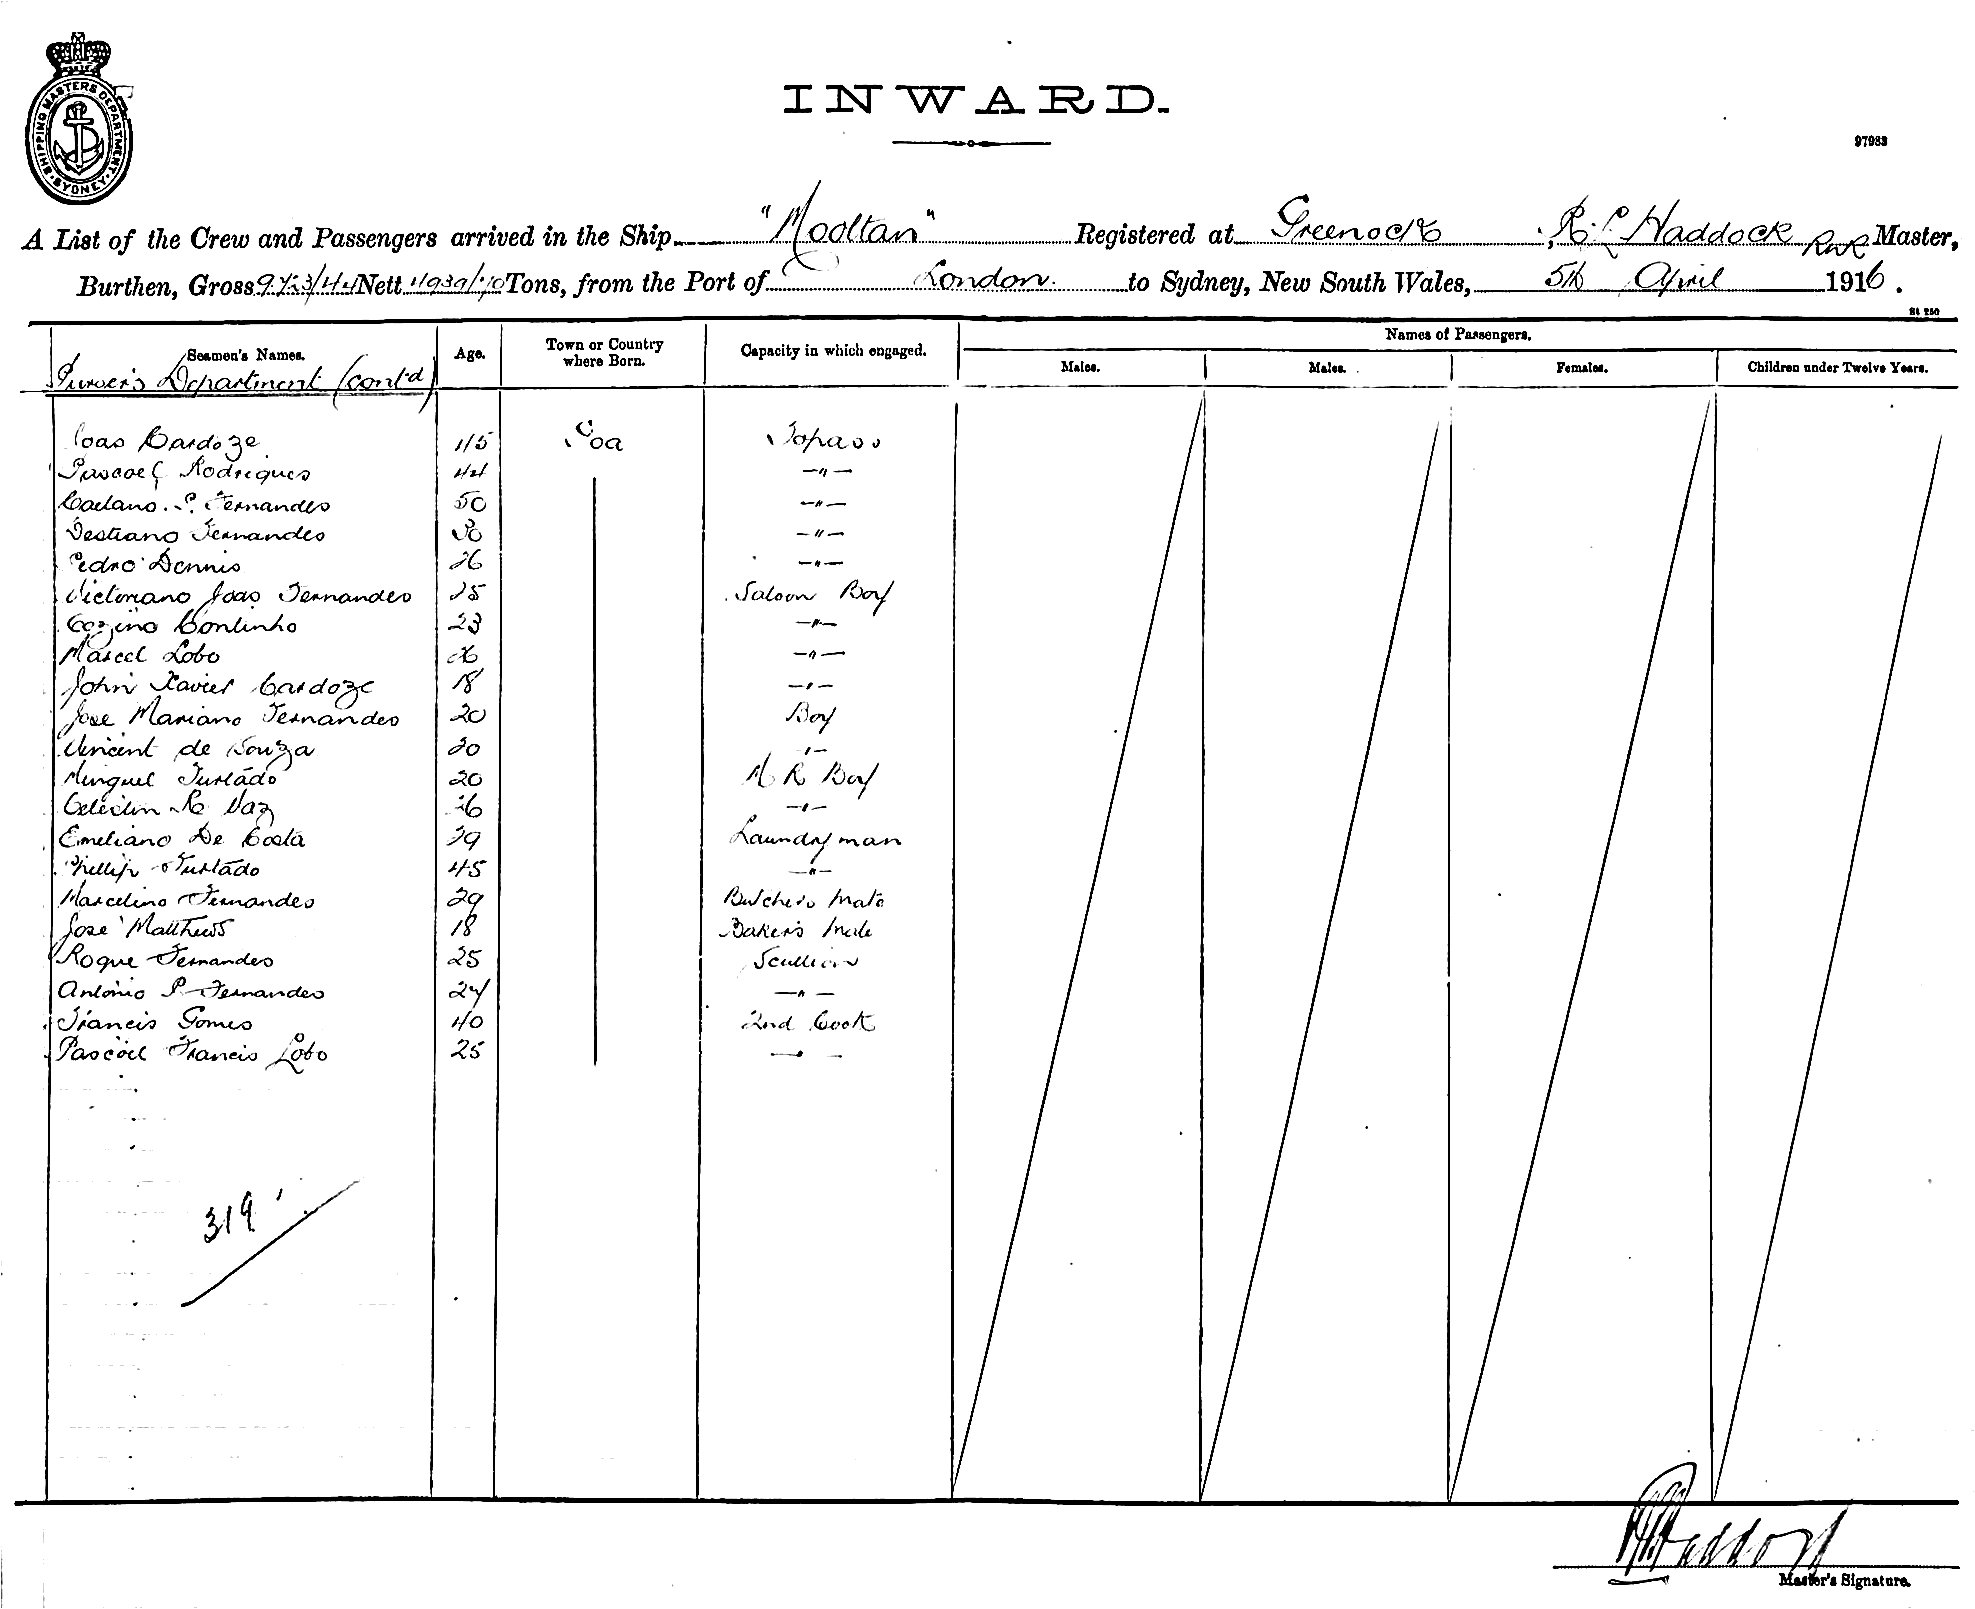 SHIPPING MASTERS DEPARTMENT. SYDNEY.
INWARD.
97983
A List of the Crew and Passengers arrived in the Ship "Mooltan" Registered at Greenock, R. L. Haddock RNR Master,
Burthen, Gross Nett Tons, from the Port of London. to Sydney, New South Wales, 5th April 1916.
St 250
Seamen's Names. Age. Town or Country where Born. Capacity in which engaged. Names of Passengers.
Males. Males. Females. Children under Twelve Years.
Purser's Department (cont'd)
Joao Cardoze 45 Goa Topass
Pascoel Rodrigues 44 —"—
Caetano P. Fernandes 50 —"—
Fernandes —"—
Pedro Dennis 26 —"—
Victoriano Joao Fernandes 25 Saloon Boy
Continho 23 —"—
Marcel Lobo —"—
John Xavier Cardoze 18 —"—
Jose Mariano Fernandes 20 Boy
Vincent de Souza —"—
Minguel Furtado 20 M R Boy
Vaz 26 —"—
Emeliano De Costa 39 Laundryman
Phillip Furtado 45 —"—
Marcelino Fernandes 29 Butchers Mate
Jose Matthews 18 Bakers Mate
Roque Fernandes 25 Scullion
Antonio P. Fernandes 24 —"—
Francis Gomes 40 2nd Cook
Pascoel Francis Lobo 25 —"—
319
R L Haddock
Master's Signature.